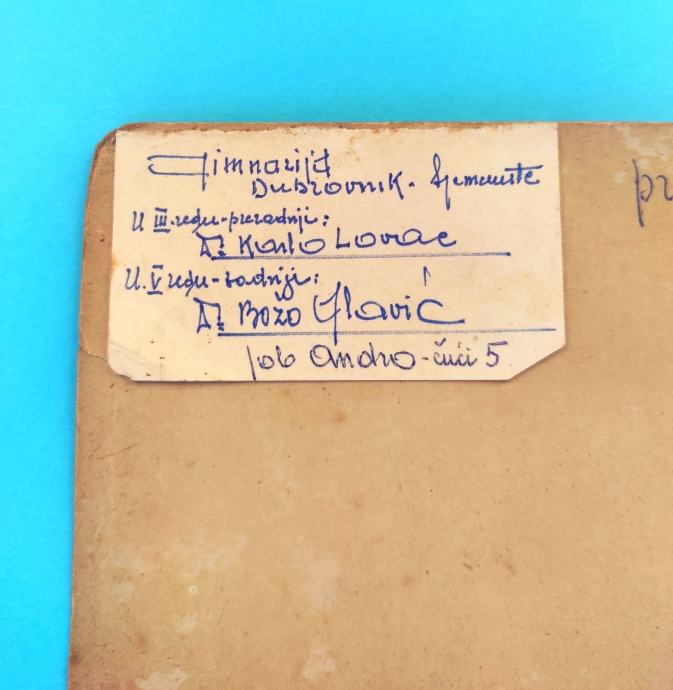 Gimnazija
Dubrovnik - Sjemenište
U III. redu - predzadnji:
Dr. Karlo Lovac
U. V redu - zadnji:
Dr. Božo Glavić
Job Andro - čuči 5
pr